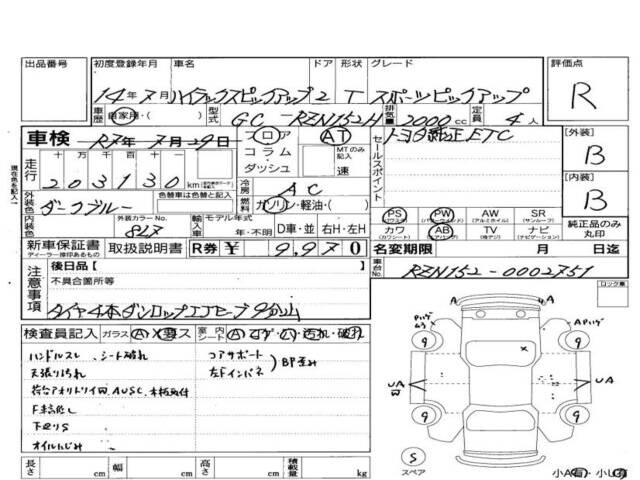 出品番号 初度登録年月 車名 ドア 形状 グレード 評価点
14年7月 ハイラックスピックアップ 2 T スポーツピックアップ R
車歴 自家用・( ) 型式 GC-RZN152H 排気量 2000 cc 定員 4 人
車検 R7年7月29日 フロア AT トヨタ純正ETC [外装]
コラム MTのみ記入 B
走行 十 万 千 百 十 一 ダッシュ 速 セールスポイント
203130 km 冷房 AC [内装]
外装色 ダークブルー 色替車は色替と記入 燃料 ガソリン・軽油・( ) B
現在色を記入
内装色 外装カラーNo. 8L7 輸入車 モデル年式 年・不明 D車・並 右H・左H
PS PW AW SR
(パワステ) (パワーウィンドウ) (アルミホイル) (サンルーフ)
カワ AB TV ナビ 純正品のみ丸印
(カワシート) (エアバッグ) (ナビゲーション)
新車保証書 取扱説明書 R券 ¥ 9,970 名変期限 月 日迄
ディーラー捺印あるもの
注意事項 後日品【 】 車台No. RZN152-0002751
不具合箇所等
タイヤ4本ダンロップ 9分山
ロック車
検査員記入 ガラス 室内 シート
ハンドルスレ、シート破れ コアサポート
天張り汚れ 左Fインパネ BP歪み
下廻りS
オイルにじみ
A A
9 9
UA UA
9 9
S
スペア
小A(有)・小U(有)
長さ cm 幅 cm 高さ cm 積載量 kg